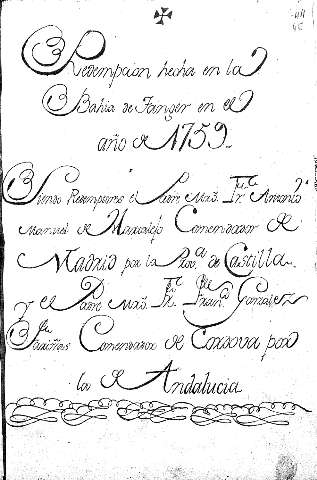 Redempcion hecha en la
Bahia de Tanger en el
año de 1759
Siendo Redemptores el Padre Mro. Fr. Antonio
Manuel de Comendador de
Madrid por la Prov.ª de Castilla
y el Padre Mro. Fr. Gonzalez
Comendador de Cordova por
la de Andalucia